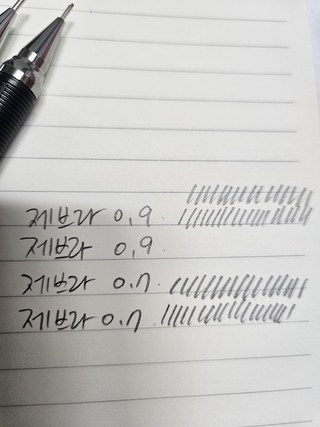 제브라 0.9
제브라 0.9
제브라 0.7
제브라 0.7